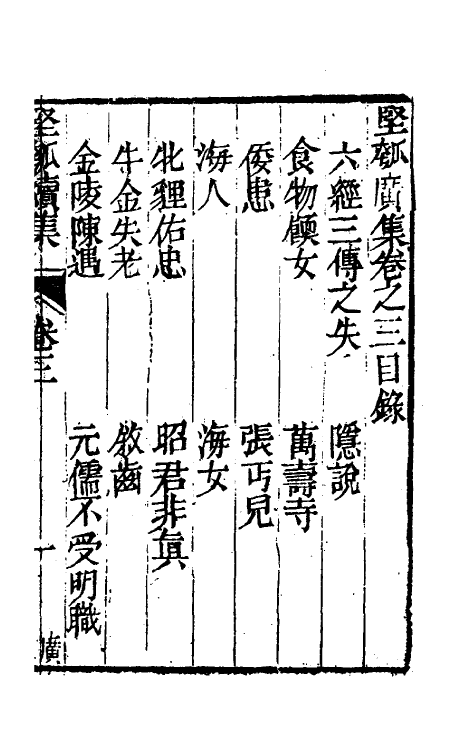 堅瓠廣集卷之三目錄
六經三傳之失　隱說
食物餽女　萬壽寺
倭患　張丐兒
海人　海女
牝貍佑忠　昭君非真
牛金失老　敘齒
金陵陳遇　元儒不受明職
堅瓠續集　卷三　一　廣